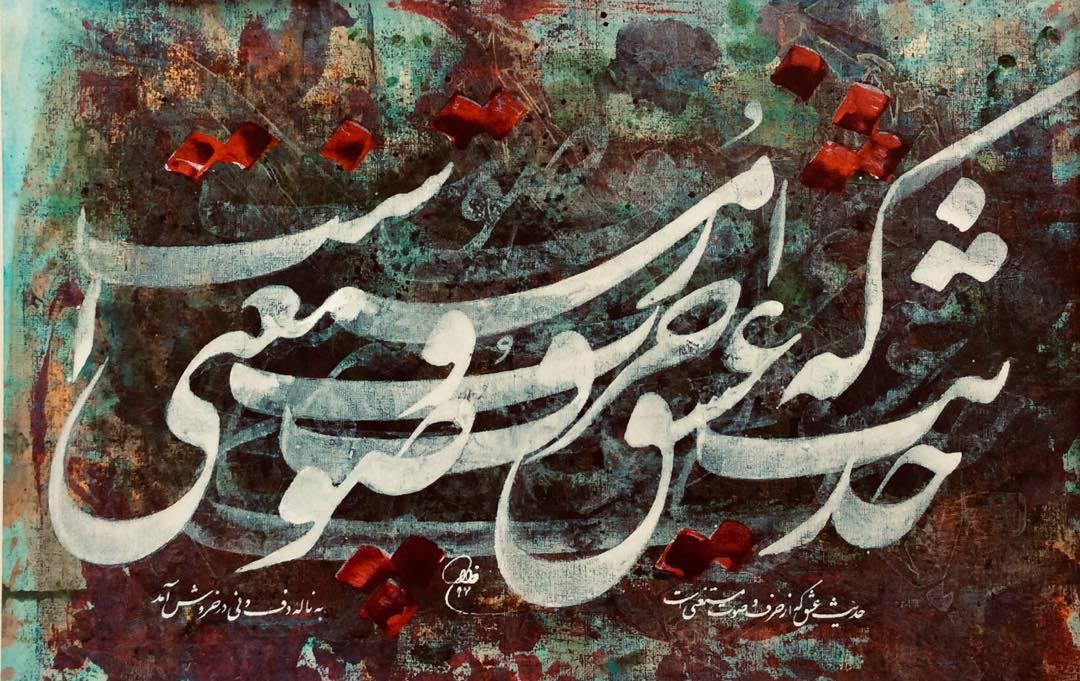 حدیث عشق که از حرف و صوت مستغنی است
حدیث عشق که از حرف و صوت مستغنی است
به ناله دف و نی در خروش آمد
۹۷